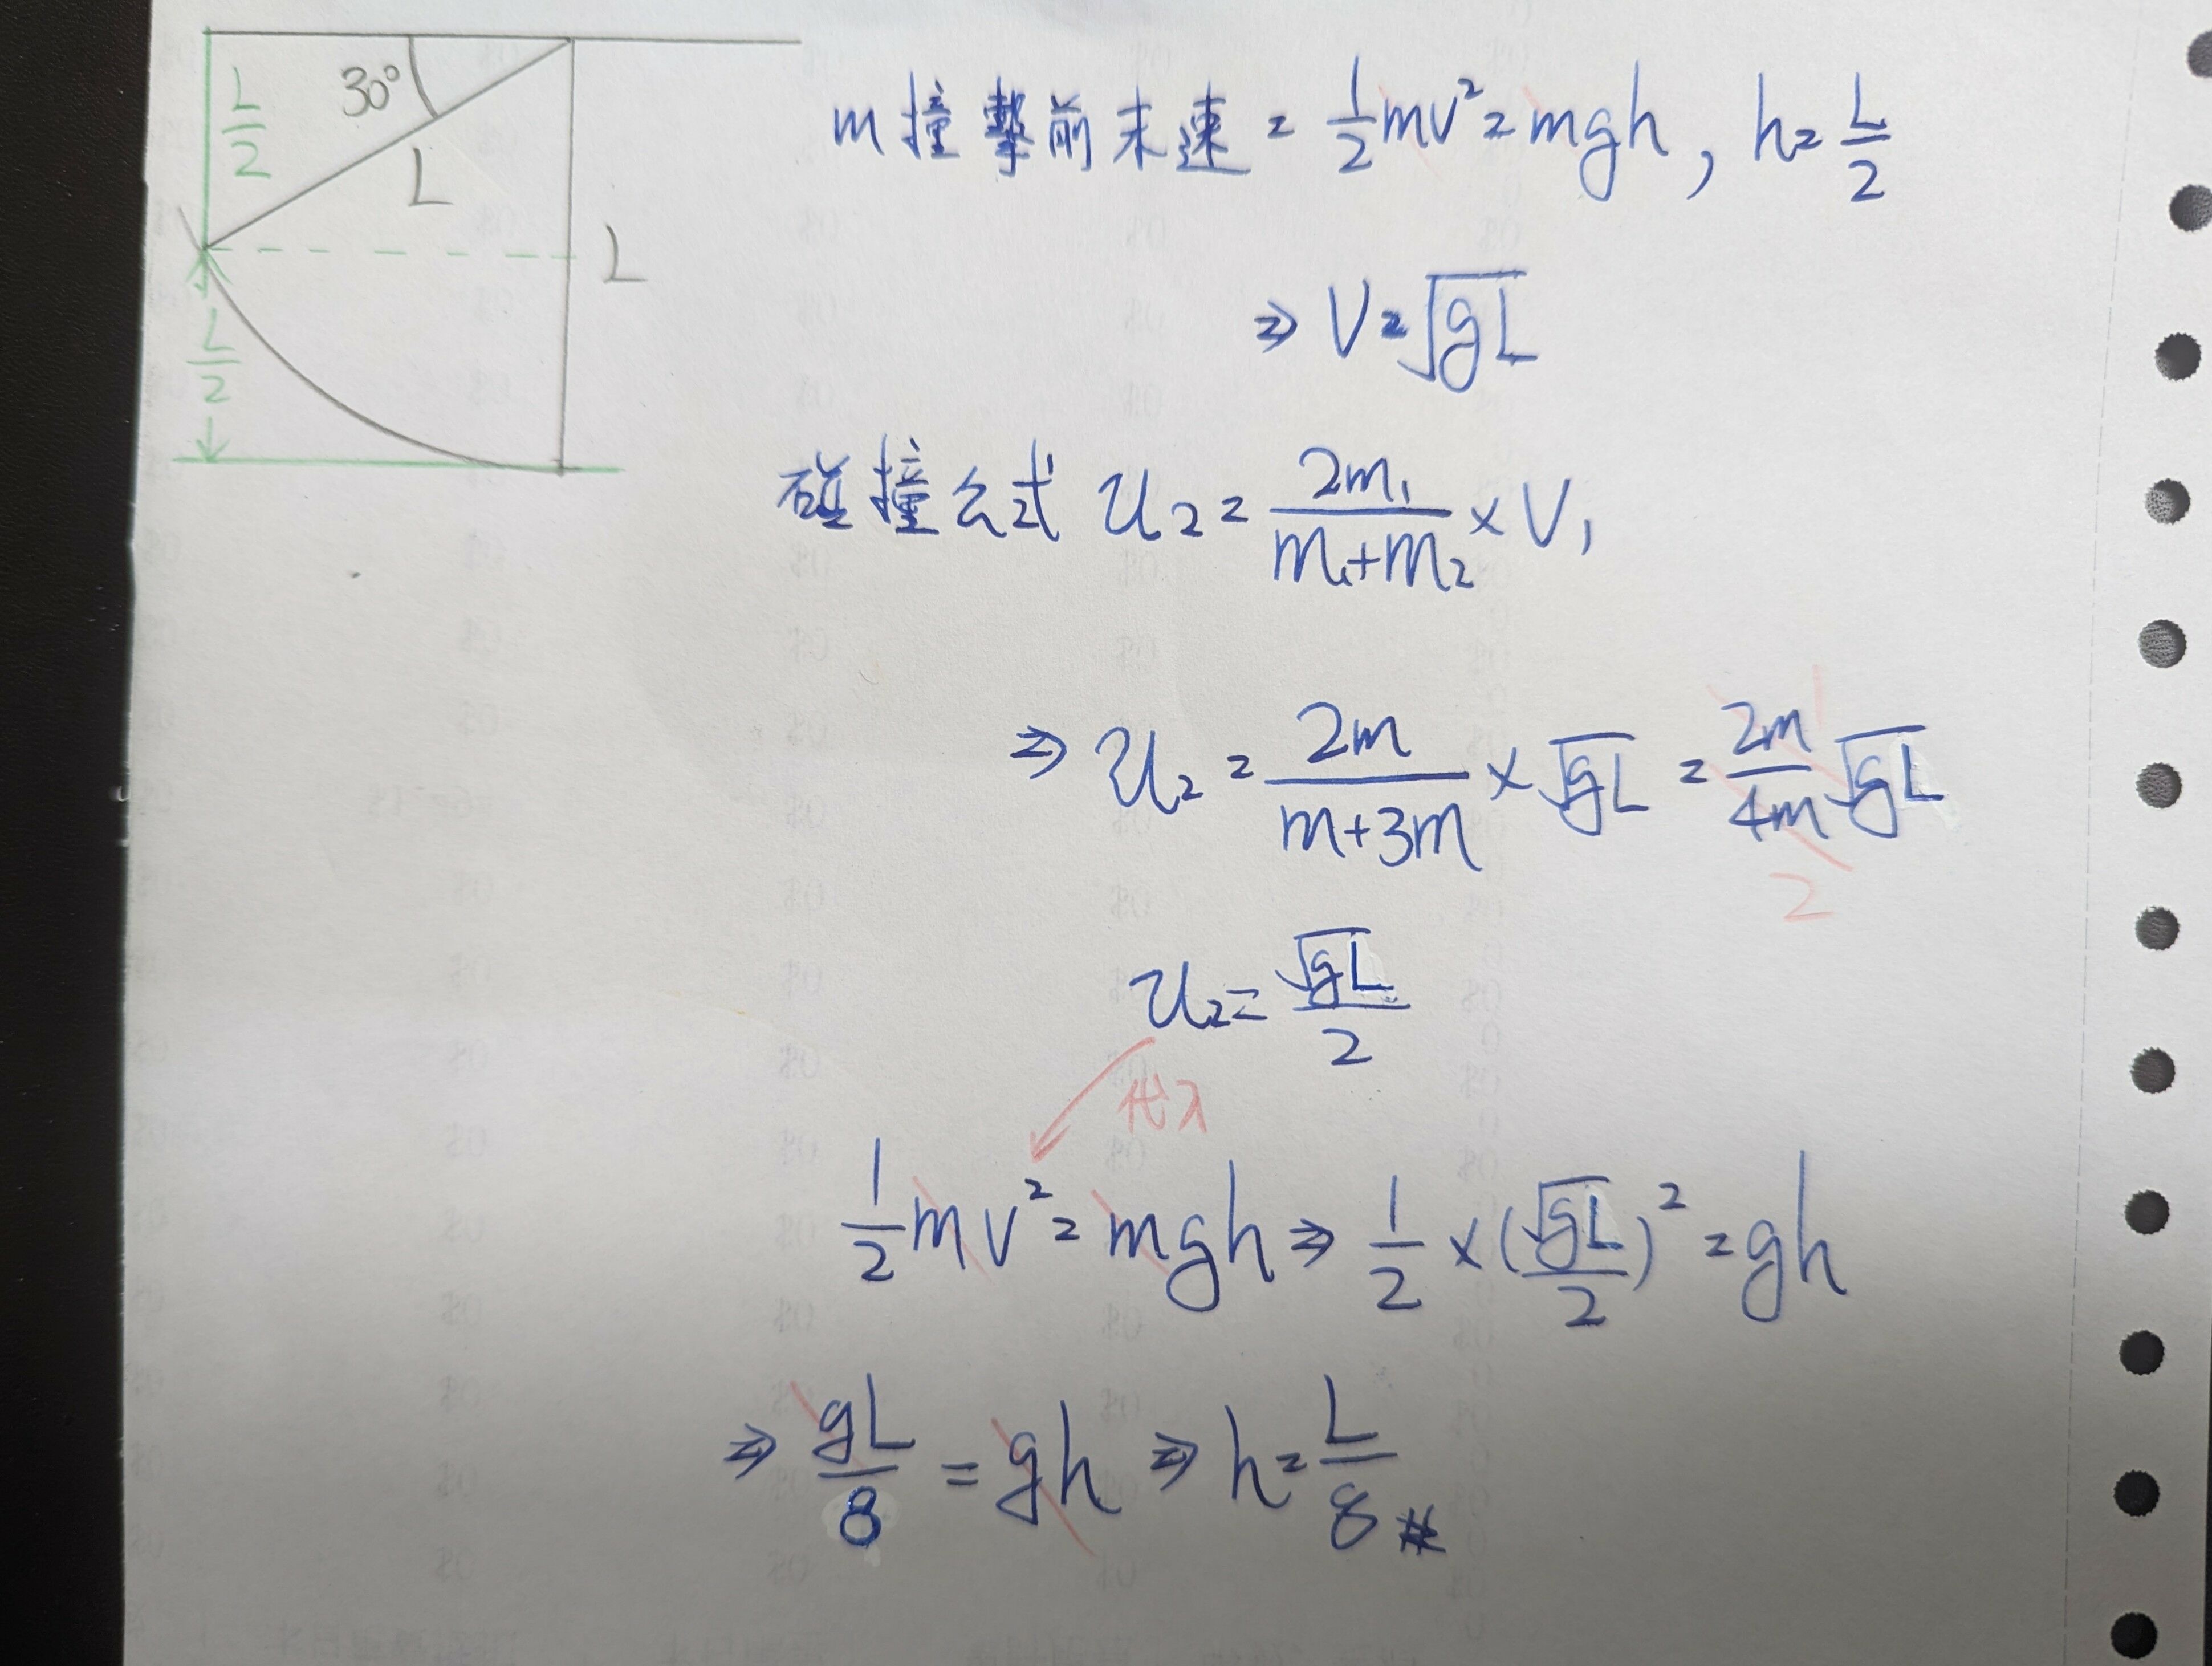 30°
L/2
L
L
L/2
m撞擊前末速 = 1/2 mv² = mgh, h = L/2
⇒ V = √gL
碰撞公式 u₂ = 2m₁/(m₁+m₂) × V₁
⇒ u₂ = 2m/(m+3m) × √gL = 2m/4m √gL
1
2
u₂ = √gL/2
代入
1/2 mv² = mgh ⇒ 1/2 × (√gL/2)² = gh
⇒ gL/8 = gh ⇒ h = L/8 #